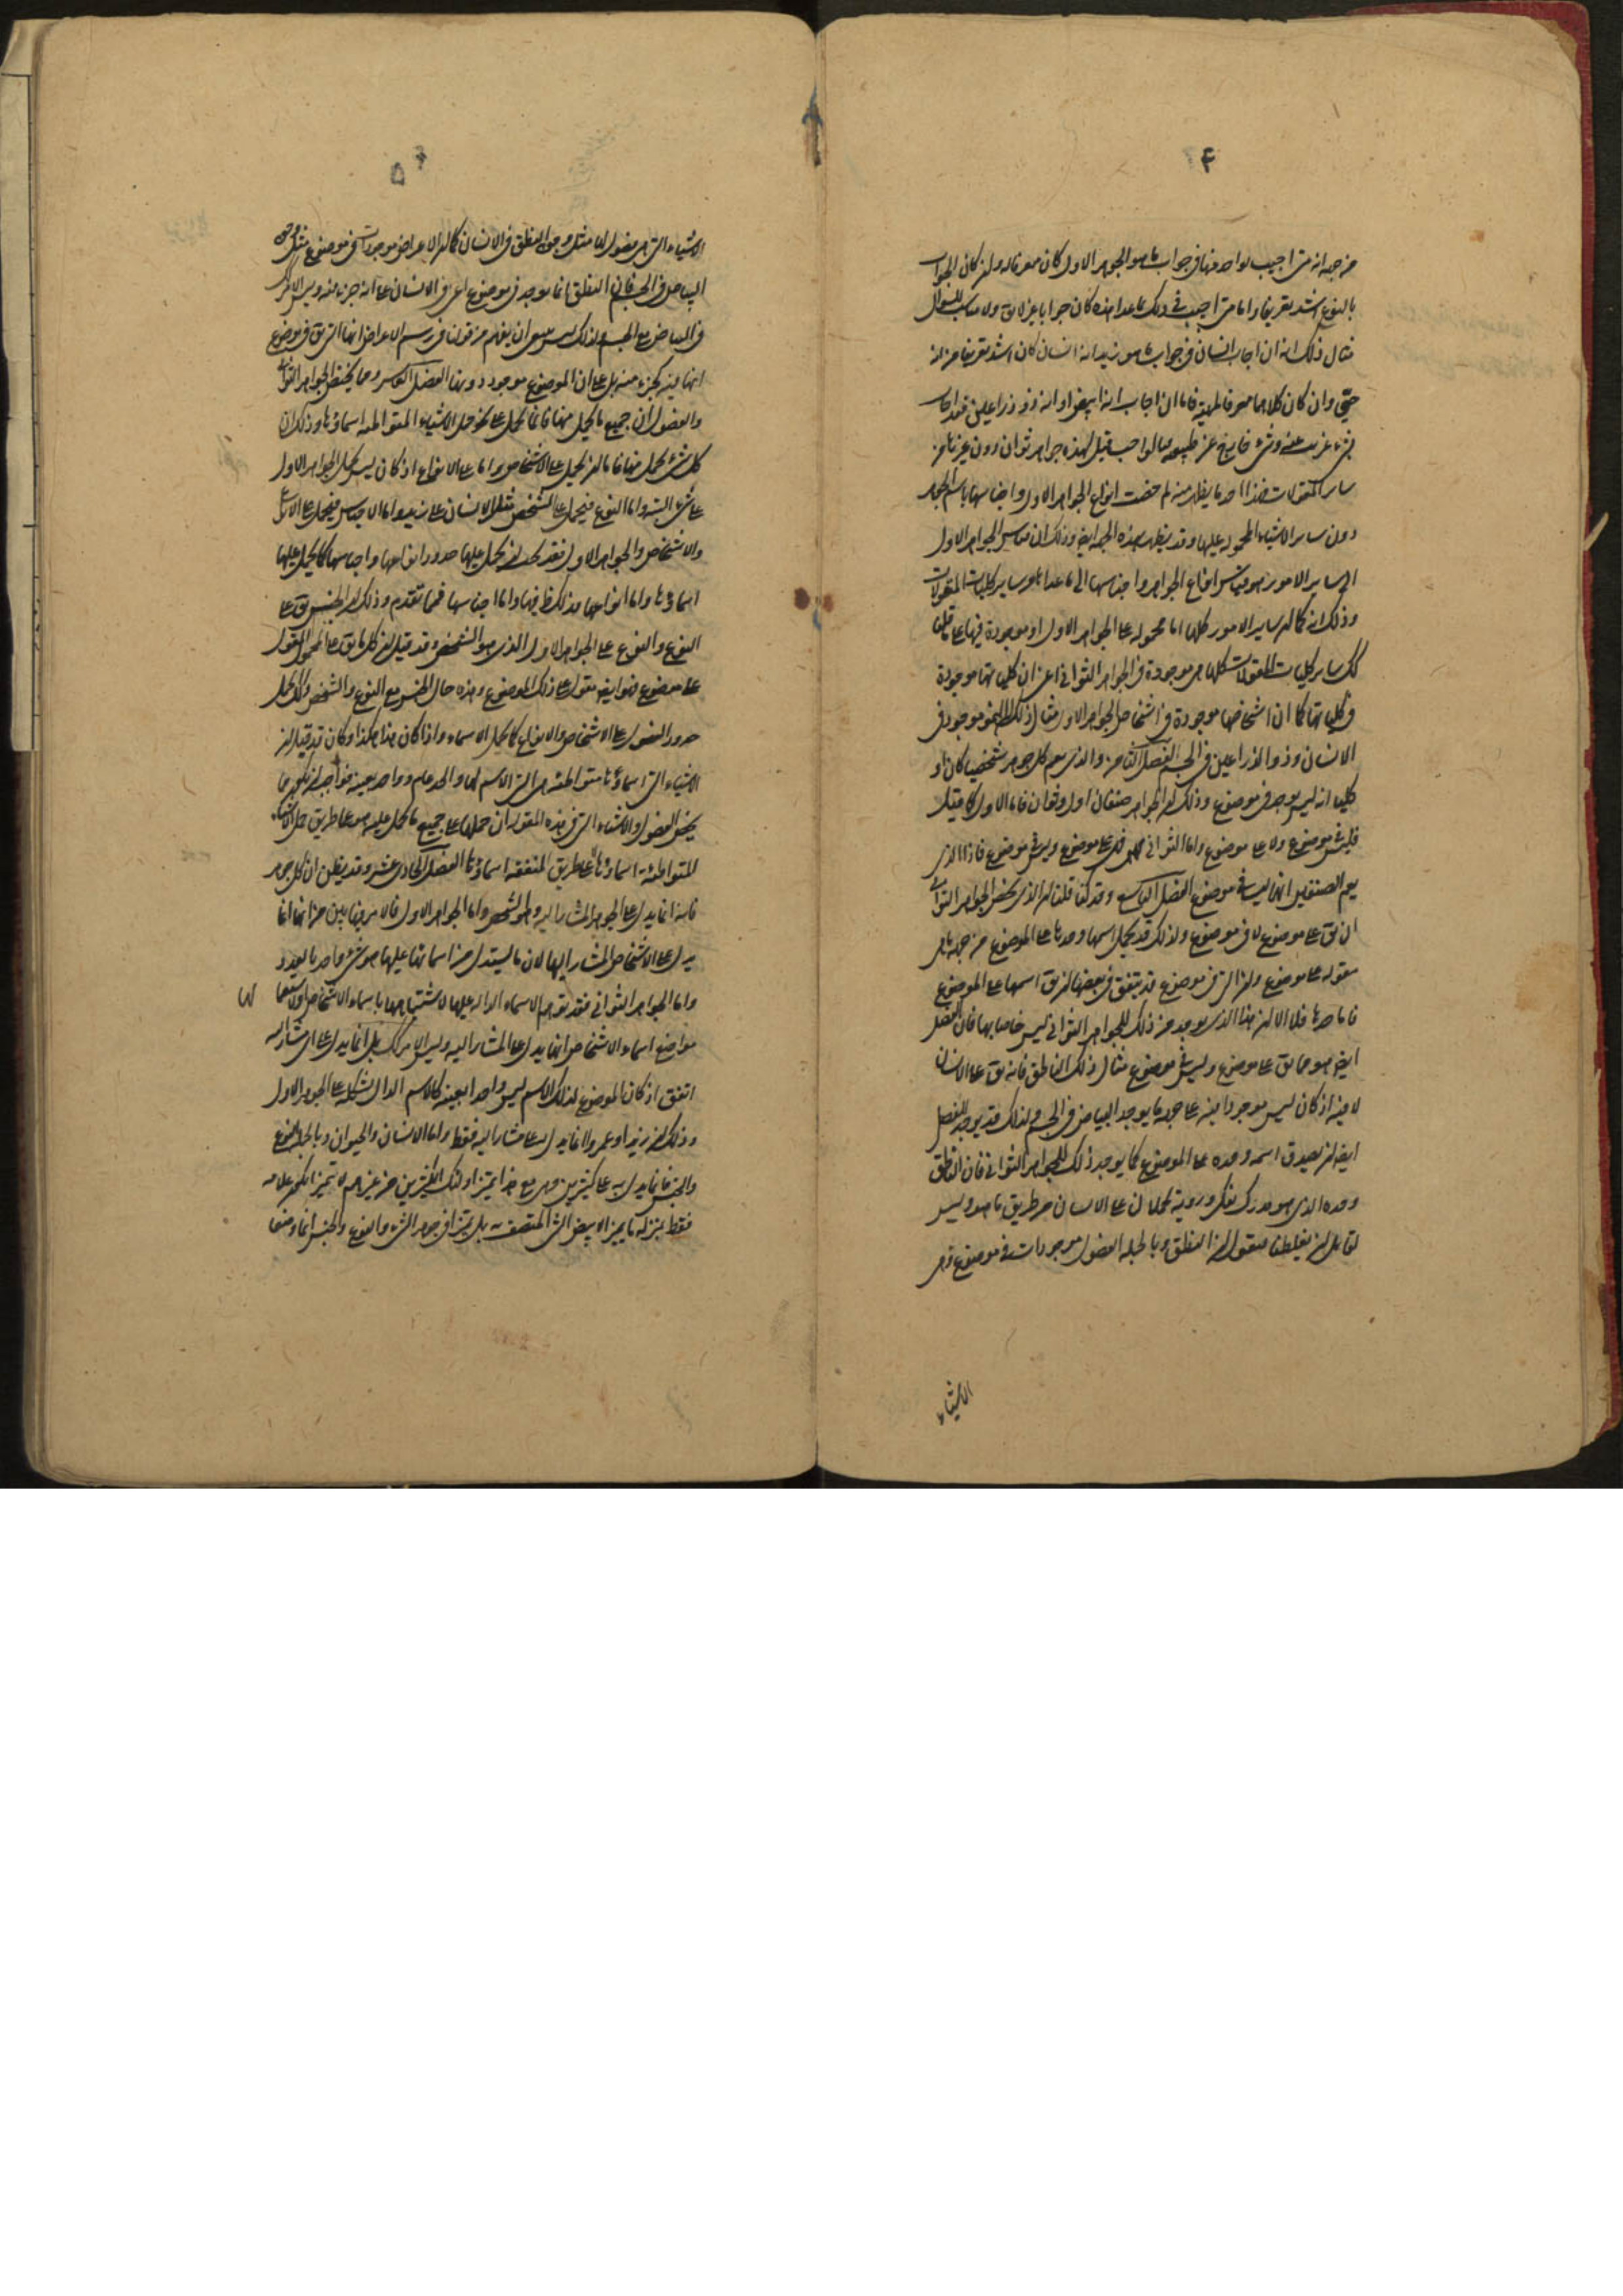 ۴
من جهة انه متى اجيب بواحد منها في جواب ما هو الجوهر الاول كان معرفا له وان كان الجواب
بالنوع اشد تعريفا واما متى اجيب في ذلك بما عدا هذه كان جوابا غير لائق ولا مناسب للسؤال
مثال ذلك انه ان اجاب انسان في جواب ما هو زيد انه انسان كان اشد تعريفا من انه
حي وان كان كلاهما معرفا لمهيته فاما ان اجاب انه ابيض او انه ذو ذراعين فقد اجاب
بشيء غريب عنه وشيء خارج عن طبيعته فبالواجب قيل لهذه جواهر ثوان دون غيرها من
ساير المقولات فهذا احد ما يظهر منه لم خصت انواع الجواهر الاول واجناسها باسم الجوهر
دون ساير الاشياء المحمولة عليها وقد يظهر بهذه الجهة ايضا وذلك ان قياس الجواهر الاول
الى ساير الامور هو قياس انواع الجواهر واجناسها الى ما عداها من ساير كليات المقولات
وذلك انه كما ان ساير الامور كلها اما محمولة على الجواهر الاول او موجودة فيها على ما قلنا
كك ساير كليات المقولات كلها هي موجودة في الجواهر الثواني اعني ان كلياتها موجودة
في كلياتها كما ان اشخاصها موجودة في اشخاص الجواهر الاول مثال ذلك النحو موجود في
الانسان وذو الذراعين في الجسم الفصل الثامن والذي يعم كل جوهر شخصيا كان او
كليا انه ليس يوجد في موضوع وذلك ان الجواهر صنفان اول وثوان فاما الاول كما قيل
فليس في موضوع ولا على موضوع واما الثواني فهي على موضوع وليس في موضوع فاذا الذي
يعم الصنفين انها ليست في موضوع الفصل التاسع وقد كنا قلنا ان الذي يخص الجواهر الثواني
ان يق على موضوع لا في موضوع ولذلك قد يحمل اسمها وحدها على الموضوع من جهة ما هي
مقولة على موضوع وان التي في موضوع قد يتفق في بعضها ان يق اسمها على الموضوع
فاما حدها فلا الا ان هذا الذي يوجد من ذلك للجواهر الثواني ليس خاصا بها فان الفصل
ايضا هو مما يق على موضوع وليس في موضوع مثال ذلك الناطق فانه يق على الانسان
لا فيه اذ كان ليس موجودا فيه على جهة ما يوجد البياض في الجسم ولذلك قد يوجد للفصل
ايضا ان يصدق اسمه وحده على الموضوع كما يوجد ذلك للجواهر الثواني فان الناطق
وحده الذي هو مدرك بفكر وروية يحملان على الانسان من طريق ما هو وليس
لقائل ان يغلطنا فيقول ان النطق وبالجملة الفصول موجودات في موضوع وهي
الاشياء
۵
الاشياء التي هي فصول لها مثل وجود النطق في الانسان كما ان الاعراض موجودات في موضوع مثل وجود
البياض في الجسم فان النطق انما يوجد في موضوع اعني في الانسان على انه جزء منه وليس الامر كك
في البياض مع الجسم ولذلك ليس ينبغي ان يفهم من قولنا في رسم الاعراض انها التي يق في موضوع
انها فيه كجزء منه بل على ان الموضوع موجود دونها الفصل العاشر ومما يخص الجواهر الثواني
والفصول ان جميع ما يحمل منها فانما يحمل على نحو حمل الاشياء المتواطئة اسماؤها وذلك ان
كل شيء يحمل منها فاما ان يحمل على الاشخاص واما على الانواع اذ كان ليس يحمل الجواهر الاول
على شيء البتة واما النوع فيحمل على الشخص مثل الانسان على زيد واما الاجناس فيحمل على الانواع
والاشخاص والجواهر الاول فقد يجب ان يحمل عليها حدود انواعها واجناسها كما يحمل عليها
اسماؤها واما انواعها فذلك ظ فيها واما اجناسها فمما تقدم وذلك ان الجنس يق على
النوع والنوع على الجواهر الاول الذي هو الشخص وقد قيل ان كل ما يق على المحمول المقول
على موضوع فهو ايضا مقول على ذلك الموضوع وهذه حال الجنس مع النوع والشخص وكك يحمل
حدود الفصول على الاشخاص والانواع كما يحمل الاسماء واذا كان هذا هكذا وكان قد قيل ان
الاشياء التي اسماؤها متواطئة هي التي الاسم لها والحد عام وواحد بعينه فواجب ان يكون مما
يخص الفصول والاشياء التي في هذه المقولة ان حملها على جميع ما يحمل عليه هو على طريق حمل الاشياء
المتواطئة اسماؤها لا على طريق المتفقة اسماؤها الفصل الحادي عشر وقد يظن ان كل جوهر
فانه انما يدل على الجوهر المشار اليه وهو الشخص واما الجواهر الاول فالامر فيها بين من انها انما
يدل على الاشخاص المشار اليها لان ما يستدل من اسمائها عليها هو شيء واحد بالعدد
واما الجواهر الثواني فقد توهم الاسماء الدالة عليها لاشتباهها باسماء الاشخاص ولاستعمالها
مواضع اسماء الاشخاص انها يدل على المشار اليه وليس الامر كك بل انما يدل على اي مشار اليه
اتفق اذ كان الموضوع لذلك الاسم ليس واحدا بعينه كالاسم الدال بشكله على الجوهر الاول
وذلك ان زيدا وعمروا انما يدل على مشار اليه فقط واما الانسان والحيوان وبالجملة النوع
والجنس فانما يدل به على كثيرين وهي مع هذا يميز اولئك الكثيرين من غيرهم لا تميزا يكون علامة
فقط بمنزلة ما يميز الابيض الشيء المتصف به بل يميزا في جوهر الشيء والنوع والجنس انما وضعا